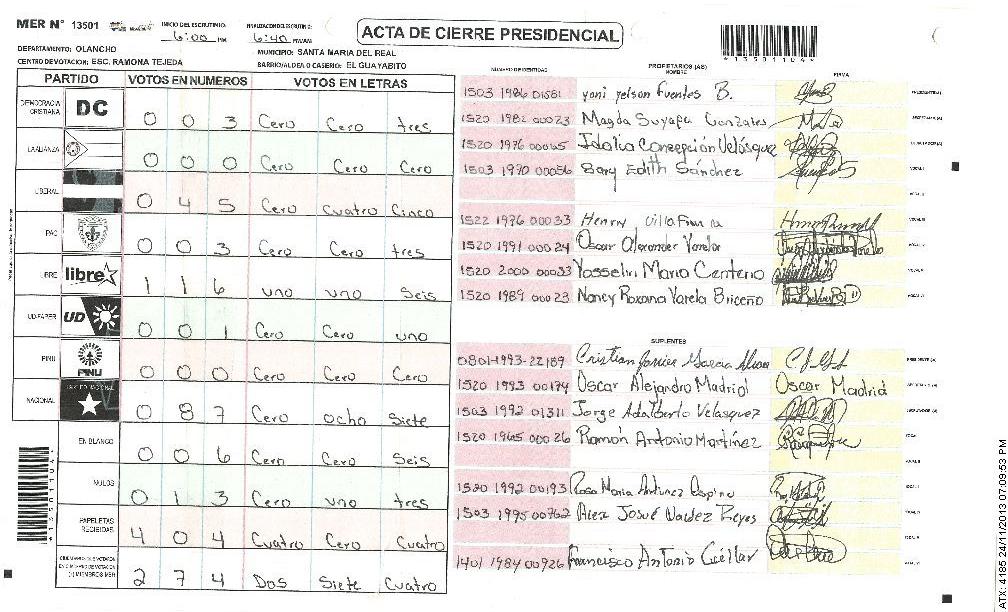 MER N° 13501 INICIO DEL ESCRUTINIO: 6:00 PM FINALIZACION DEL ESCRUTINIO: 6:40 PM/AM
ACTA DE CIERRE PRESIDENCIAL
*13501104*
DEPARTAMENTO: OLANCHO MUNICIPIO: SANTA MARIA DEL REAL
CENTRO DE VOTACION: ESC. RAMONA TEJEDA BARRIO/ALDEA O CASERIO: EL GUAYABITO
PARTIDO VOTOS EN NUMEROS VOTOS EN LETRAS
DEMOCRACIA CRISTIANA DC 0 0 3 Cero Cero tres
LA ALIANZA 0 0 0 Cero Cero Cero
LIBERAL 0 4 5 Cero Cuatro Cinco
PAC 0 0 3 Cero Cero tres
LIBRE libre 1 1 6 uno uno Seis
UD-FAPER UD 0 0 1 Cero Cero uno
PINU PINU 0 0 0 Cero Cero Cero
NACIONAL 0 8 7 Cero ocho Siete
EN BLANCO 0 0 6 Cero Cero Seis
NULOS 0 1 3 Cero uno tres
PAPELETAS RECIBIDAS 4 0 4 Cuatro Cero Cuatro
2 7 4 Dos Siete Cuatro
*13501104*
NUMERO DE IDENTIDAD PROPIETARIOS (AS) NOMBRE FIRMA
1503 1986 01581 yoni yelson Fuentes B. PRESIDENTE(A)
1520 1982 00023 Magda Suyapa Gonzales SECRETARIO(A)
1520 1976 00065 Idalia Concepción Velásquez ESCRUTADOR(A)
1503 1970 00056 Sary Edith Sánchez VOCAL I
VOCAL II
1522 1976 00033 Henry Villafranca VOCAL III
1520 1991 00024 Oscar Alexander Varela
1520 2000 00033 Yosselin Mario Centeno
1520 1989 00023 Nancy Roxana Varela Briceño
SUPLENTES
0801-1993-22189 Cristian Javier PRESIDENTE (A)
1520 1993 00174 Oscar Alejandro Madrid Oscar Madrid
1503 1992 01311 Jorge Adalberto Velasquez
1520 1965 000 26 Ramón Antonio Martínez
1520 1992 00193 Rosa Maria Antunez Ospino
1503 1995 00762 Alex Josué Valdez Reyes
1401 1984 00926 Francisco Antonio Cuéllar
ATX: 4185 24/11/2013 07:09:53 PM